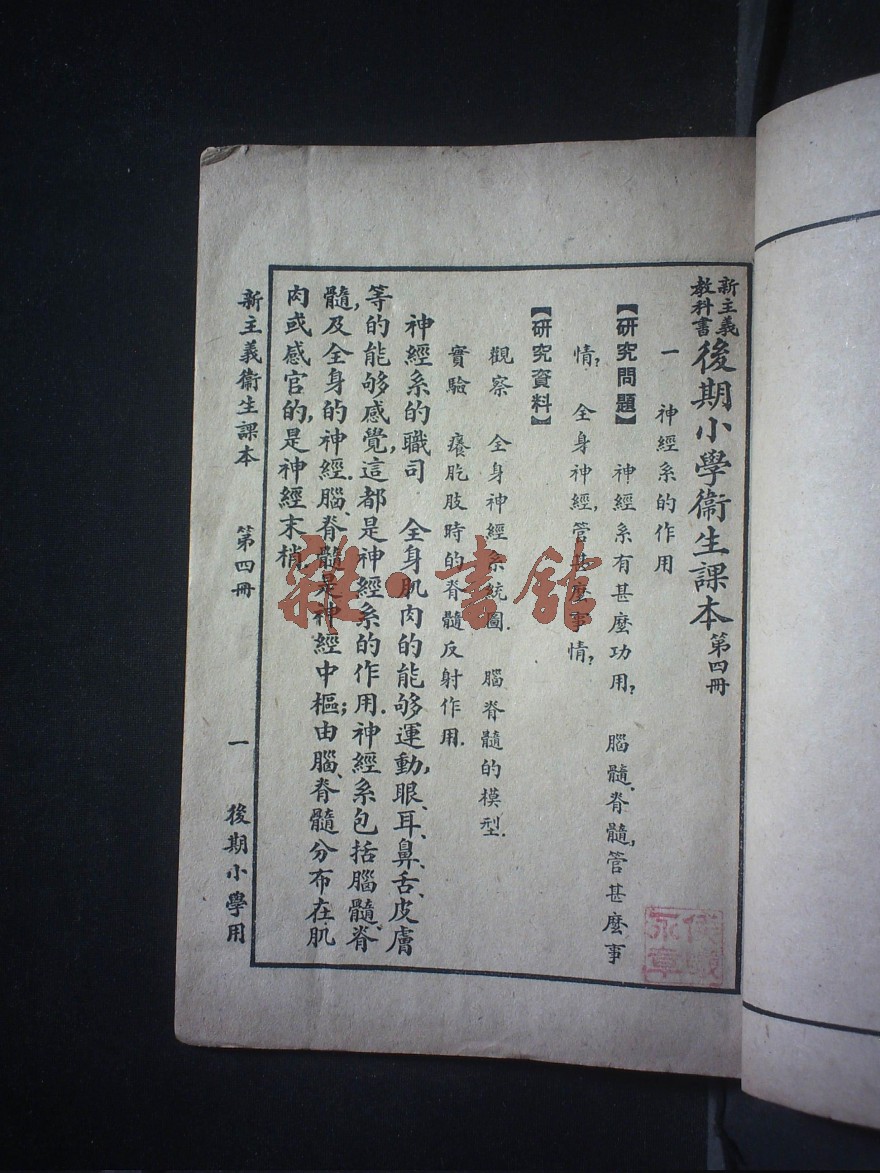 新主義教科書 後期小學衞生課本 第四冊
一 神經系的作用
【研究問題】 神經系有甚麼功用? 腦髓、脊髓,管甚麼事
情? 全身神經,管甚麼事情?
【研究資料】
觀察 全身神經系統圖. 腦脊髓的模型.
實驗 癢肐肢時的脊髓反射作用.
神經系的職司 全身肌肉的能够運動,眼、耳、鼻、舌、皮膚
等的能够感覺,這都是神經系的作用.神經系包括腦髓、脊
髓,及全身的神經.腦、脊髓是神經中樞;由腦、脊髓分布在肌
肉或感官的,是神經末梢.
新主義衞生課本 第四冊 一 後期小學用
雜·書館